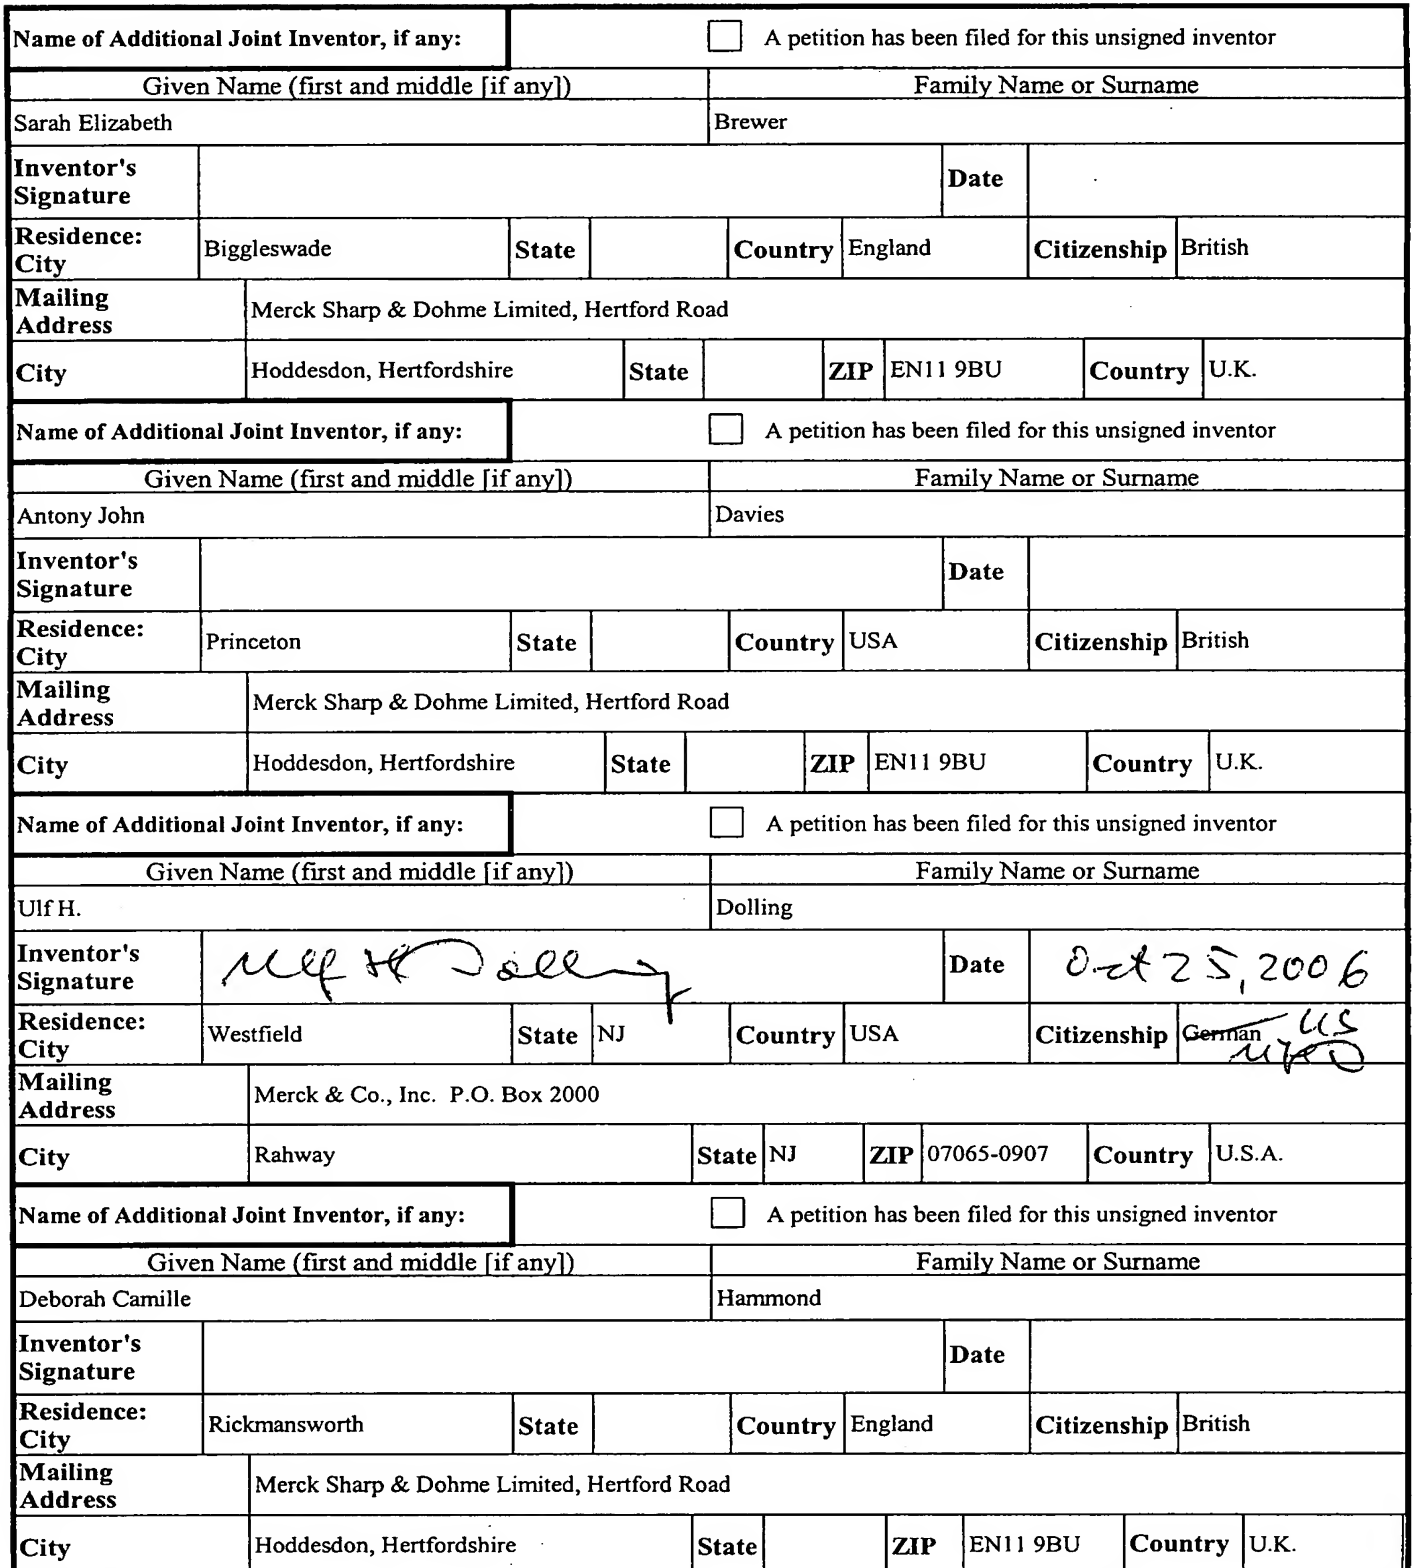 Name of Additional Joint Inventor, if any: A petition has been filed for this unsigned inventor
Given Name (first and middle [if any]) Family Name or Surname
Sarah Elizabeth Brewer
Inventor's Signature Date
Residence: City Biggleswade State Country England Citizenship British
Mailing Address Merck Sharp & Dohme Limited, Hertford Road
City Hoddesdon, Hertfordshire State ZIP EN11 9BU Country U.K.
Name of Additional Joint Inventor, if any: A petition has been filed for this unsigned inventor
Given Name (first and middle [if any]) Family Name or Surname
Antony John Davies
Inventor's Signature Date
Residence: City Princeton State Country USA Citizenship British
Mailing Address Merck Sharp & Dohme Limited, Hertford Road
City Hoddesdon, Hertfordshire State ZIP EN11 9BU Country U.K.
Name of Additional Joint Inventor, if any: A petition has been filed for this unsigned inventor
Given Name (first and middle [if any]) Family Name or Surname
Ulf H. Dolling
Inventor's Signature Ulf H Dolling Date Oct 25, 2006
Residence: City Westfield State NJ Country USA Citizenship German US
Mailing Address Merck & Co., Inc. P.O. Box 2000
City Rahway State NJ ZIP 07065-0907 Country U.S.A.
Name of Additional Joint Inventor, if any: A petition has been filed for this unsigned inventor
Given Name (first and middle [if any]) Family Name or Surname
Deborah Camille Hammond
Inventor's Signature Date
Residence: City Rickmansworth State Country England Citizenship British
Mailing Address Merck Sharp & Dohme Limited, Hertford Road
City Hoddesdon, Hertfordshire State ZIP EN11 9BU Country U.K.